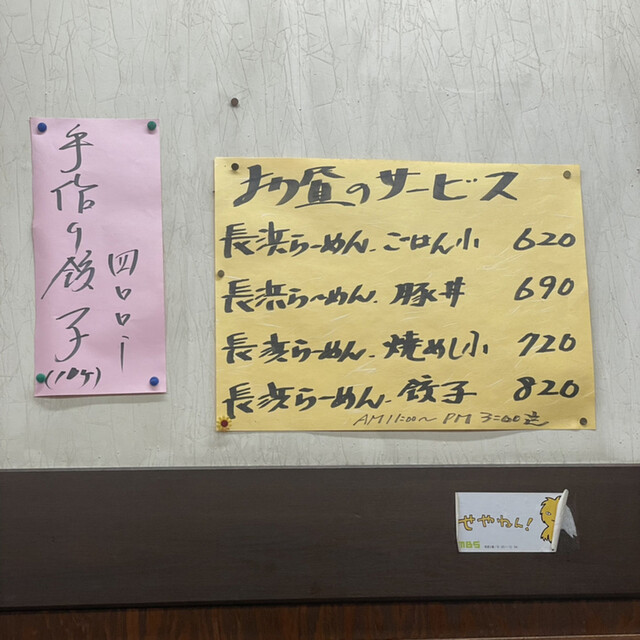 手作り餃子
(10ケ)
四〇〇ー
お昼のサービス
長浜らーめん、ごはん小 620
長浜らーめん、豚丼 690
長浜らーめん、焼めし小 720
長浜らーめん、餃子 820
AM11:00〜PM3:00迄
せやねん!
MBS